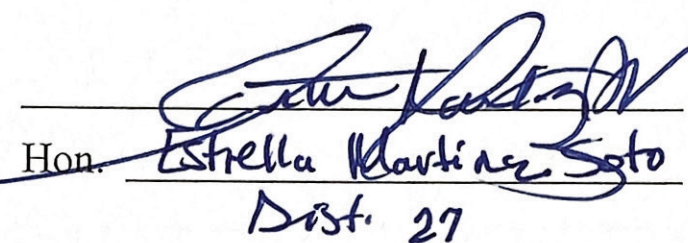 Hon. Estrella Martínez Soto
Dist. 27